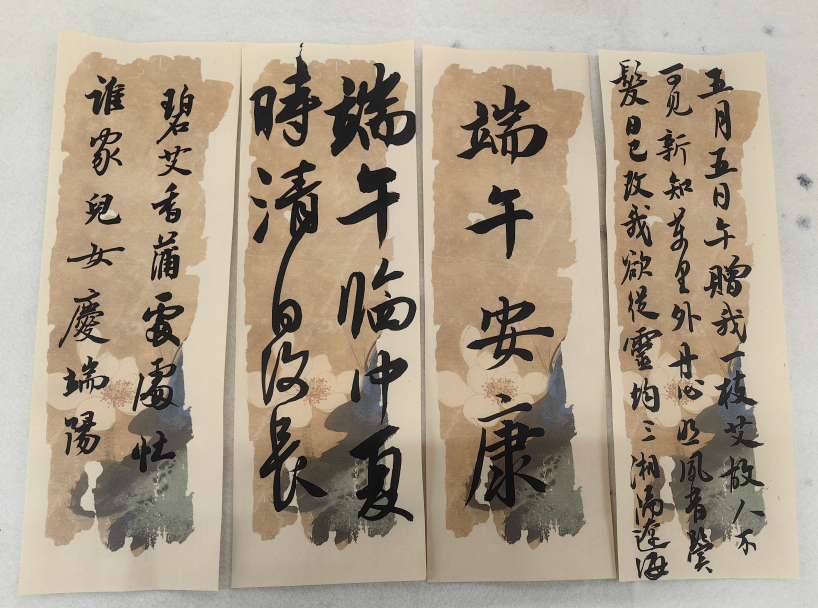 五月五日午贈我一枝艾故人不
可见新知萬里外丹心照夙昔鬢
髮日已改我欲從靈均三湘隔遼海
端午安康
端午臨仲夏
時清日復長
碧艾香蒲處處忙
誰家兒女慶端陽